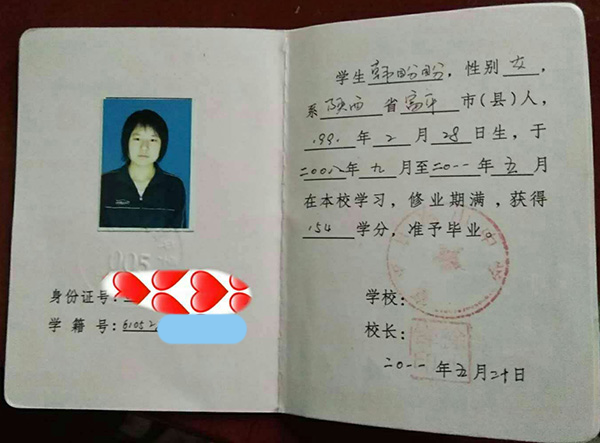 身份证号:
学 籍 号: 61052
学生韩盼盼,性别女,
系陕西省富平市(县)人,
199 年2月28日生,于
二00八年九月至二0一一年五月
在本校学习,修业期满,获得
154学分,准予毕业。
学校:
校长:
二0一一年五月二十日